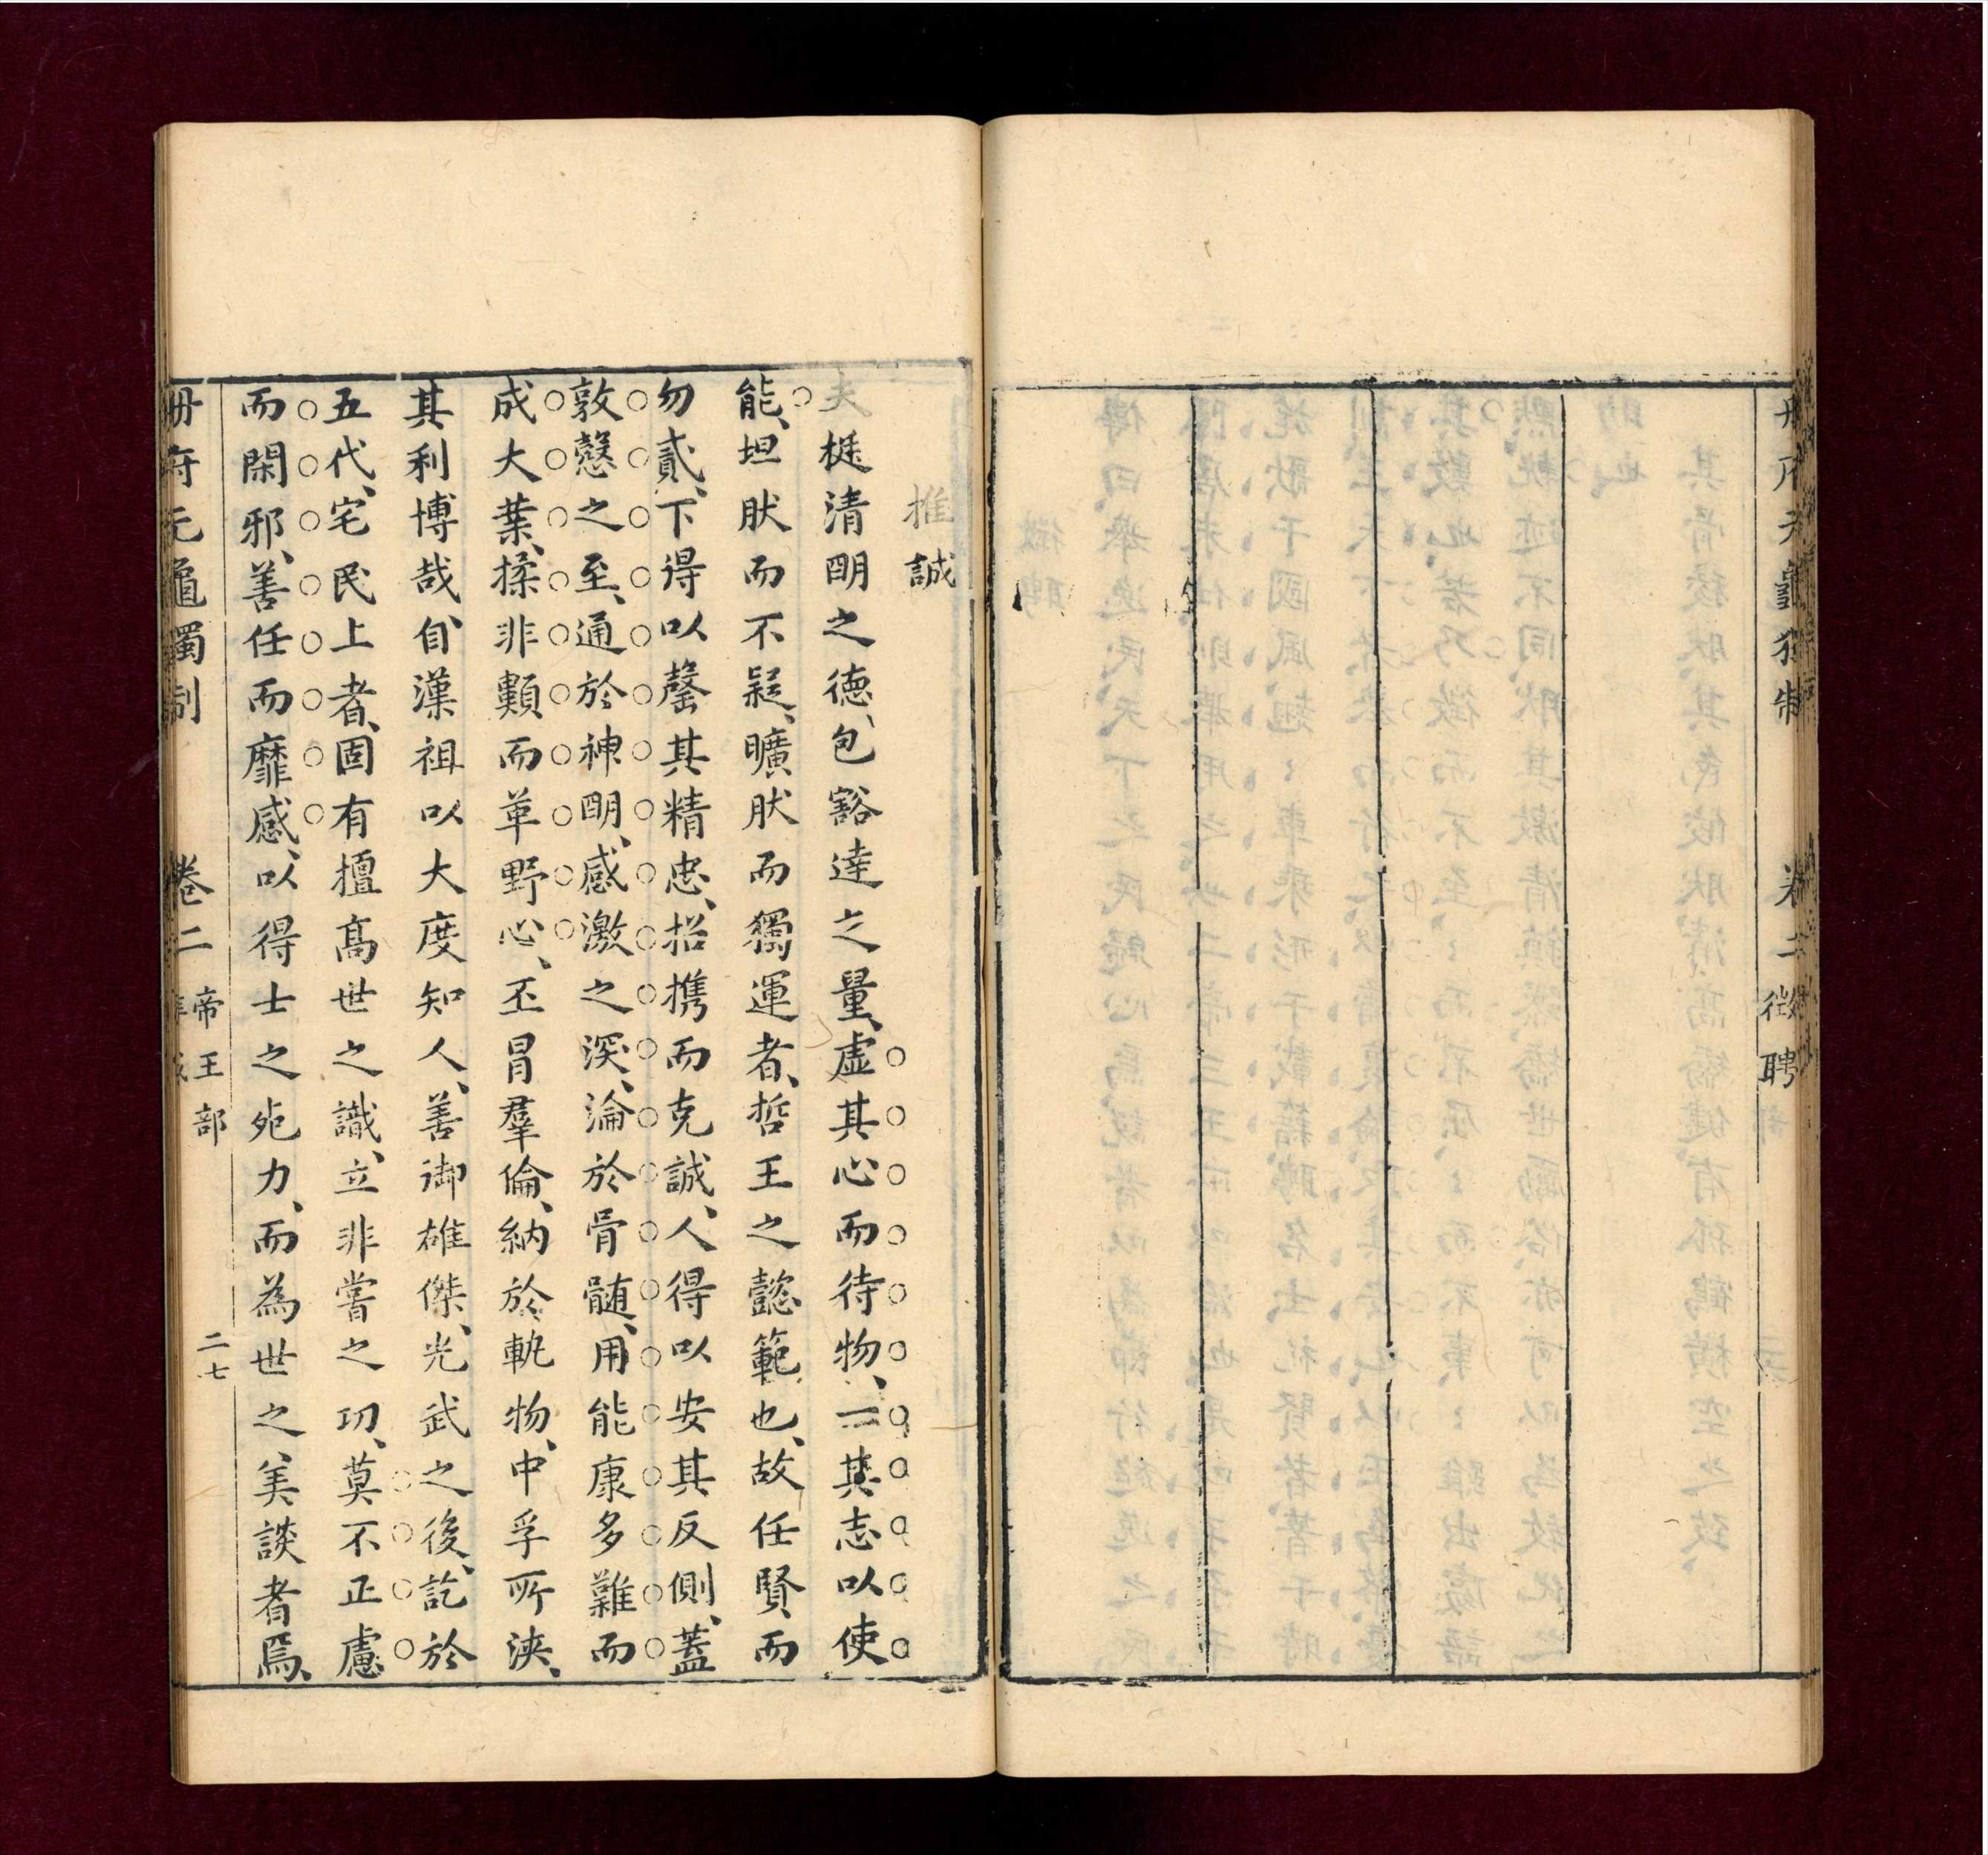 冊府元龜獨制 卷二 徵聘
推誠
夫挺清明之德、包豁達之量、虛其心而待物、一其志以使
能、坦肰而不疑、曠肰而獨運者、哲王之懿範也、故任賢而
勿貳、下得以罄其精忠、招携而克誠、人得以安其反側、蓋
敦慤之至、通於神明、感激之深、淪於骨髓、用能康多難而
成大業、揉非類而革野心、丕冒羣倫、納於軌物、中孚所浹、
其利博哉、自漢祖以大度知人、善御雄傑、光武之後、訖於
五代、宅民上者、固有擅高世之識、立非嘗之功、莫不正慮
而閑邪、善任而靡惑、以得士之死力、而為世之美談者焉、
冊府元龜獨制 卷二 帝王部 二七